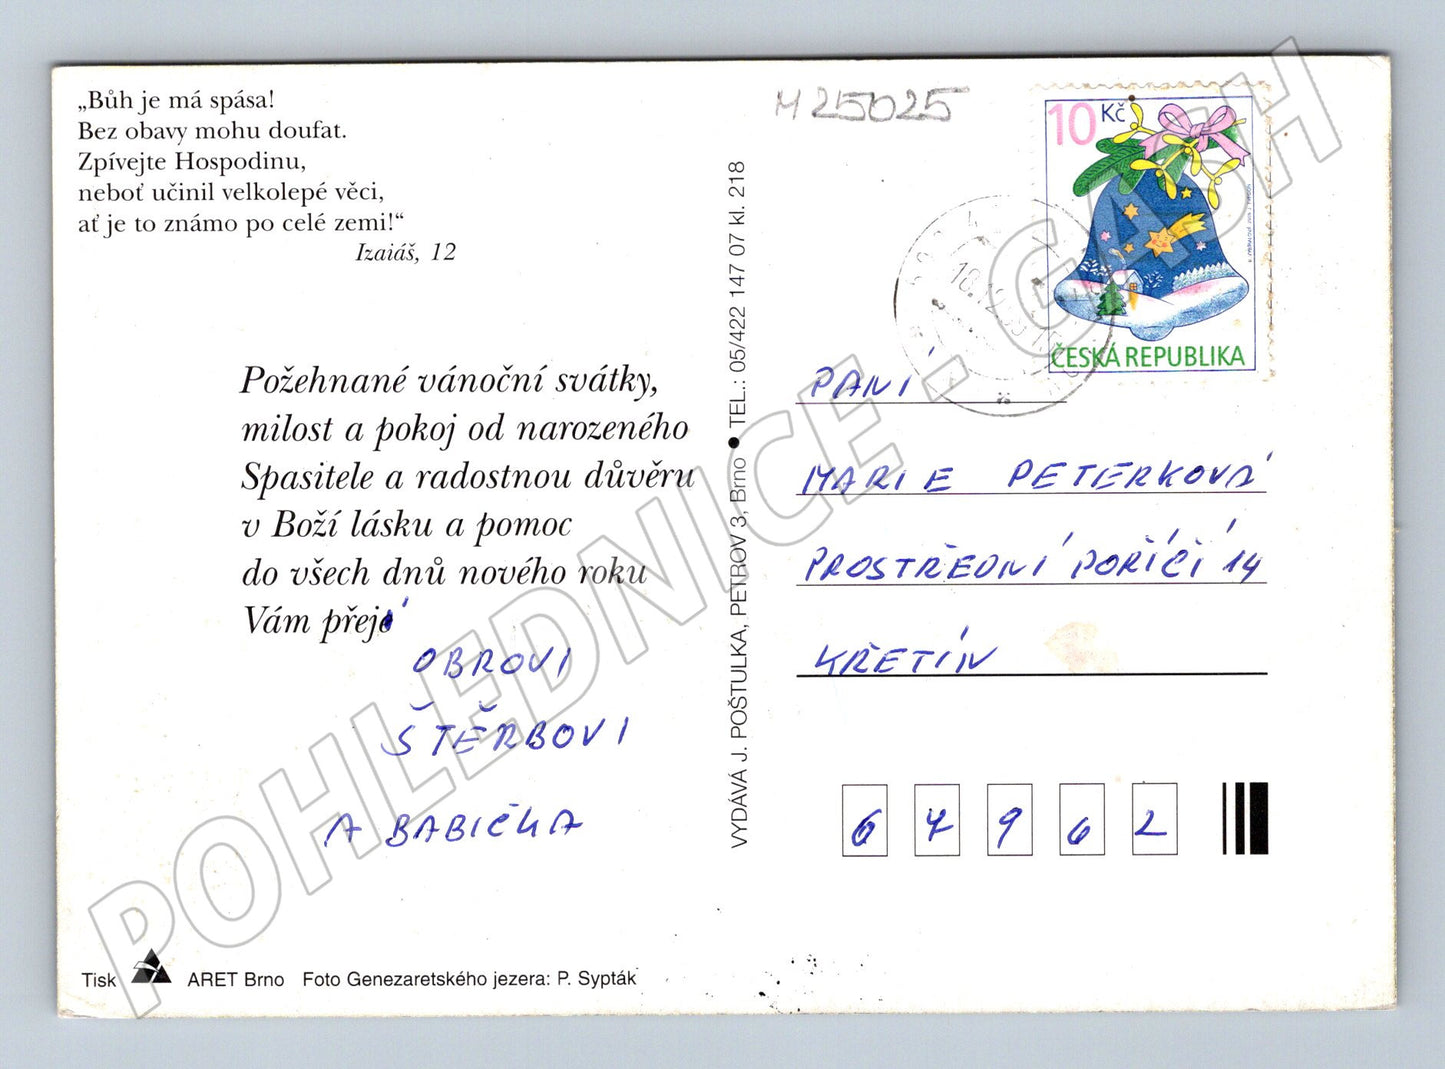 „Bůh je má spása!
Bez obavy mohu doufat.
Zpívejte Hospodinu,
neboť učinil velkolepé věci,
ať je to známo po celé zemi!“
Izaiáš, 12
Požehnané vánoční svátky,
milost a pokoj od narozeného
Spasitele a radostnou důvěru
v Boží lásku a pomoc
do všech dnů nového roku
Vám přejí
OBROVI
ŠTĚRBOVI
A BABIČKA
Tisk ARET Brno Foto Genezaretského jezera: P. Sypták
VYDÁVÁ J. POŠTULKA, PETROV 3, Brno • TEL.: 05/422 147 07 kl. 218
M25025
10 Kč
ČESKÁ REPUBLIKA
PANÍ
MARIE PETERKOVÁ
PROSTŘEDNÍ POŘÍČÍ 14
KŘETÍN
67962
POHLEDNICE - GASH